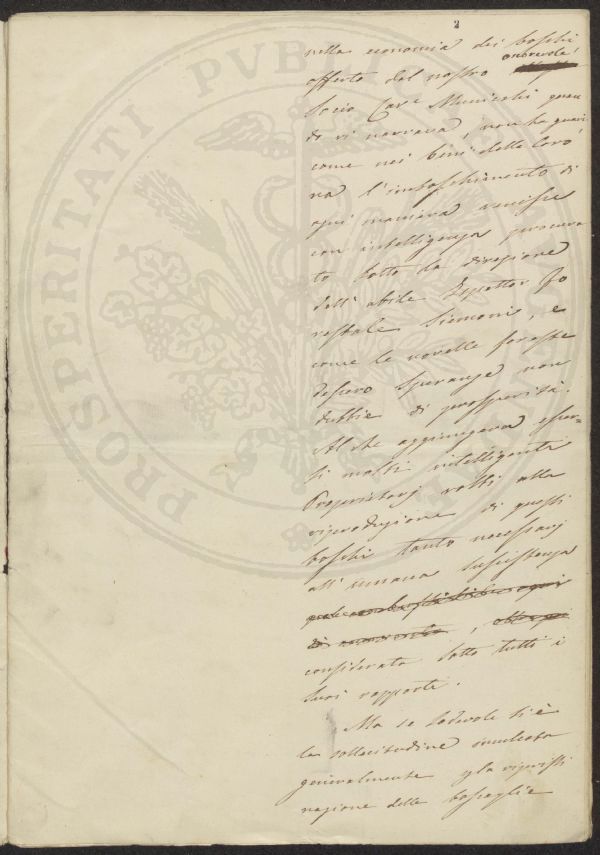 2
nella economia dei boschi
onorevole
offerto dal nostro
Socio Cav.e Municchi quan
do vi narrava, non ha guari
come nei beni della Coro
na l'imboschimento di
ogni maniera riuscisse
con intelligenza procura
to sotto la direzione
dell'abile Ispettor Fo
restale Siemoni, e
come le novelle foreste
dessero speranze non
dubbie di prosperità.
Al che aggiungeva esser
si molti intelligenti
Proprietarj volti alla
riproduzione di questi
boschi tanto necessarj
all'umana sussistenza
considerata sotto tutti i
suoi rapporti.
Ma se lodevole si è
la sollecitudine inculcata
generalmente p la ripristi
nazione delle boscaglie
PROSPERITATI PUBLICAE